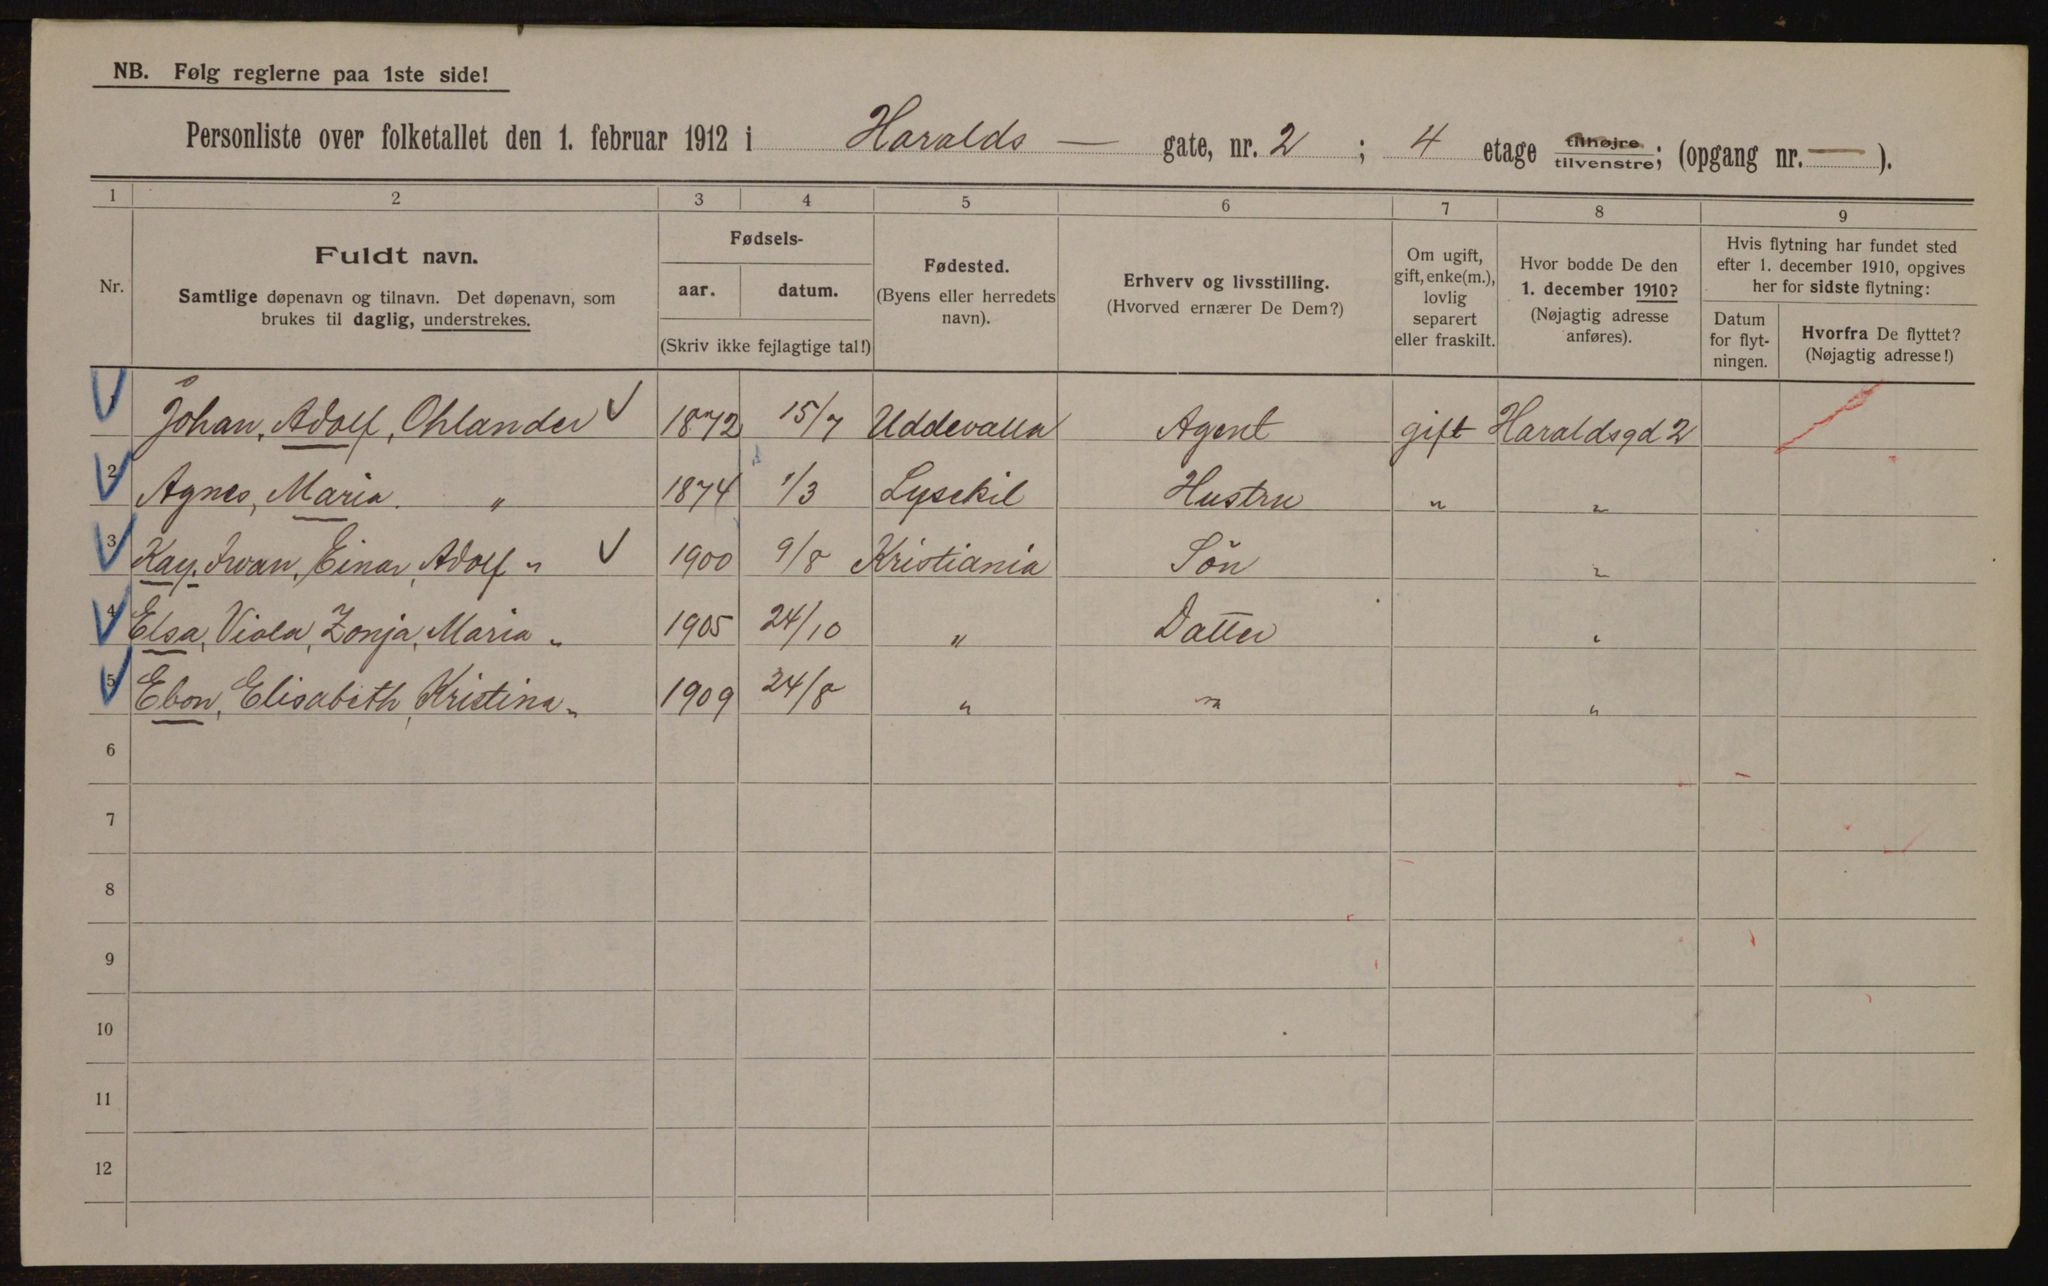 NB. Følg reglerne paa 1ste side!
Personliste over folketallet den 1. februar 1912 i Haralds — gate, nr. 2 ; 4 etage tilhøjre tilvenstre; (opgang nr. — ).
1 2 3 4 5 6 7 8 9
Nr.
Fuldt navn.
Samtlige døpenavn og tilnavn. Det døpenavn, som
brukes til daglig, understrekes.
Fødsels-
aar. datum.
(Skriv ikke fejlagtige tal!)
Fødested.
(Byens eller herredets
navn).
Erhverv og livsstilling.
(Hvorved ernærer De Dem?)
Om ugift,
gift, enke(m.),
lovlig
separert
eller fraskilt.
Hvor bodde De den
1. december 1910?
(Nøjagtig adresse
anføres).
Hvis flytning har fundet sted
efter 1. december 1910, opgives
her for sidste flytning:
Datum
for flyt-
ningen.
Hvorfra De flyttet?
(Nøjagtig adresse!)
1 Johan, Adolf, Ohlander 1872 15/7 Uddevalla Agent gift Haraldsgd 2
2 Agnes, Maria. " 1874 1/3 Lysekil Hustru " "
3 Kay, Iwan, Einar, Adolf " 1900 9/8 Kristiania Sön "
4 Elsa, Viola, Zonja, Maria " 1905 24/10 " Datter "
5 Ebon, Elisabeth, Kristina " 1909 24/8 " " "
6
7
8
9
10
11
12